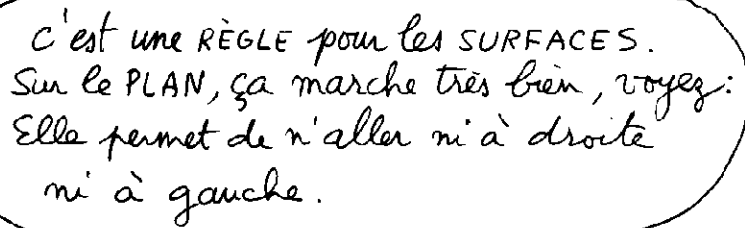 c'est une RÈGLE pour les SURFACES.
Sur le PLAN, ça marche très bien, voyez:
Elle permet de n'aller ni à droite
ni à gauche.